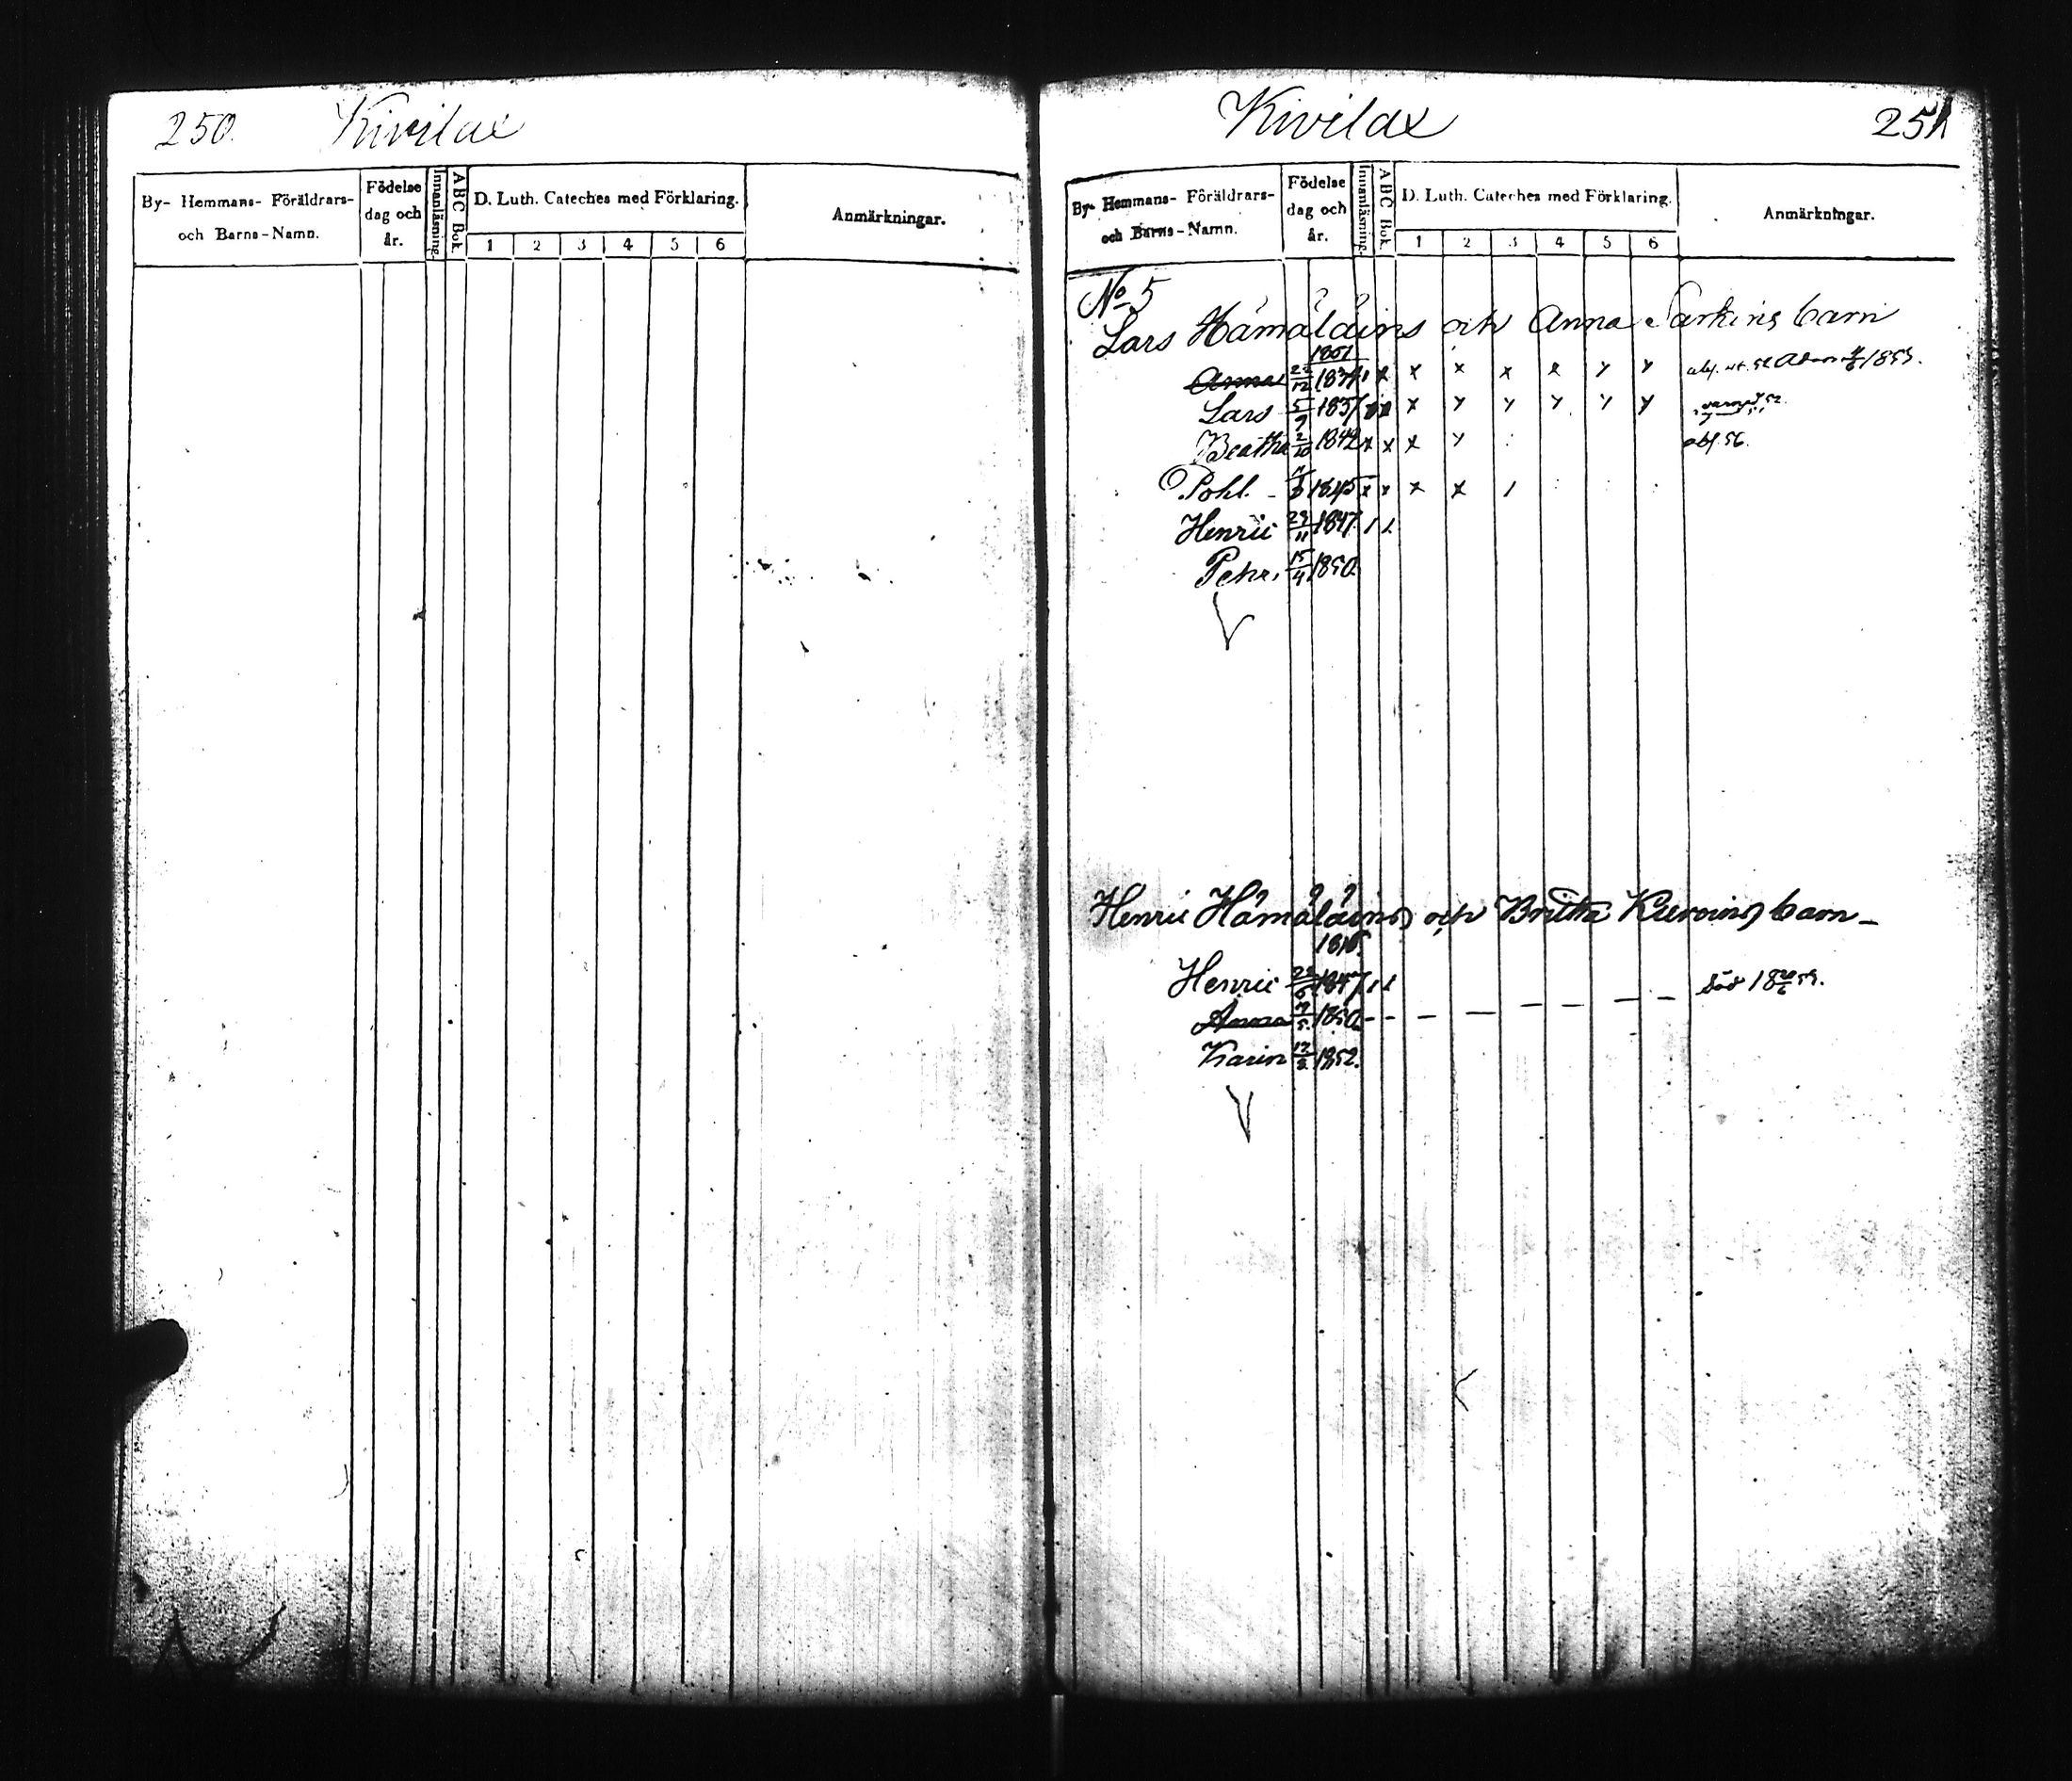 250. Kivilax
By- Hemmans- Föräldrars- och Barns-Namn.
Födelse dag och år.
Innanläsning.
ABC Bok.
D. Luth. Cateches med Förklaring.
1 2 3 4 5 6
Anmärkningar.
Kivilax 251
By- Hemmans- Föräldrars- och Barns-Namn.
Födelse dag och år.
Innanläsning.
ABC Bok.
D. Luth. Cateches med Förklaring.
1 2 3 4 5 6
Anmärkningar.
No 5
Lars Hämäläins och Anna Parkins barn
1851
Anna 22/12 1834 x x x x x y y 1853.
Lars 5/9 1837 x x x y y y y y
Beatha 2/10 1842 x x x y abs. 56.
Pohl. 1845 x x x x /
Henric 29/11 1847 / /
Pehr. 15/4 1850.
V
Henric Hämäläins och Britha barn –
Henric 1847 / /
Anna 1850 – – – – – – – – död
Karin 1852.
V